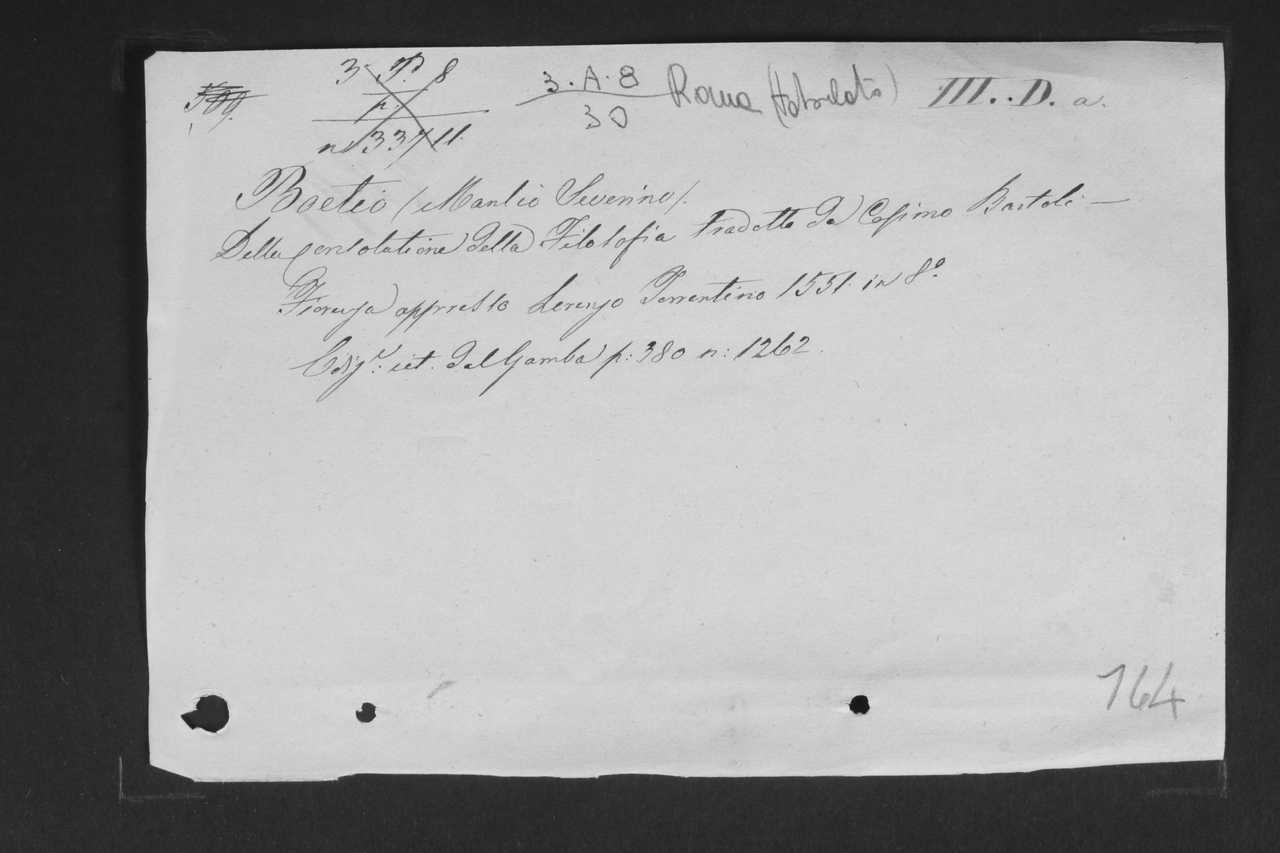 3. A. 8 Roma III. D. a.
30
n 33711
Boetio (Manlio Severino).
Della consolatione della Filosofia tradotto da Cosimo Bartoli —
Fiorenza appresso Lorenzo Torrentino 1551. in 8º
Ediz.e cit. dal Gamba p: 380 n: 1262.
164